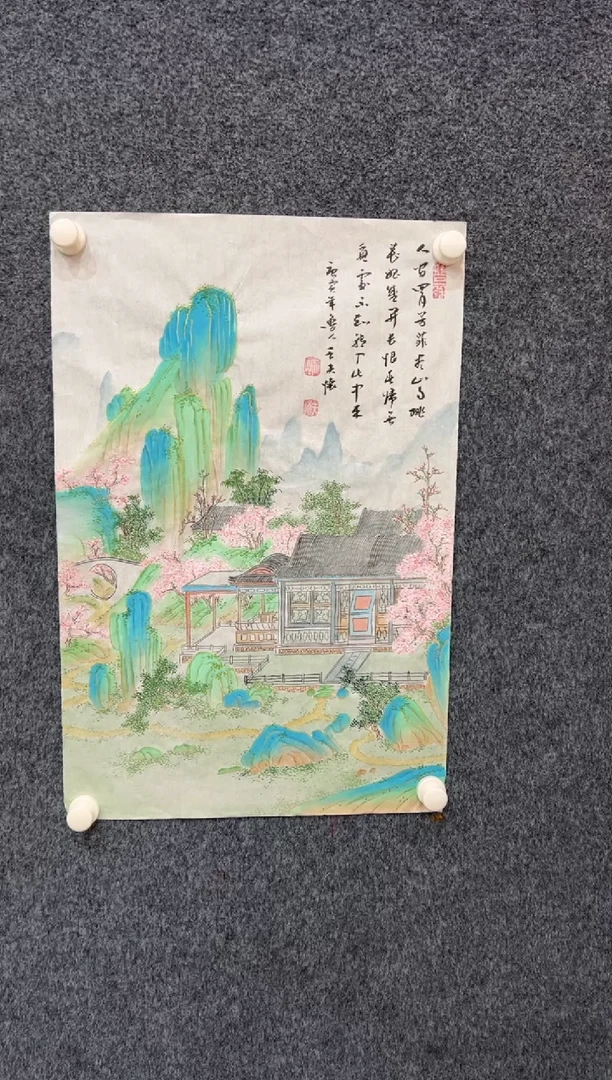 人间四月芳菲尽山寺桃
花始盛开长恨春归无
觅处不知转入此中来
庚寅年